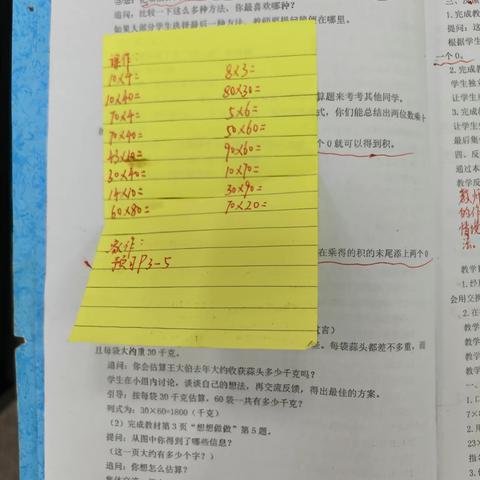 追问：比较一下这么多种方法，你最喜欢哪种？
如果大部分学生选择最后一种方法，教师要提问
在哪里。
课作：
10×4=
8×3=
10×40=
80×30=
70×4=
5×6=
70×40=
50×60=
90×60=
30×40=
10×70=
14×10=
30×90=
60×80=
70×20=
家作：
预习P3-5
算题来考考其他同学。
式，你们能总结出两位数乘
个0就可以得到积。
在乘得的积的末尾添上两个0
每袋蒜头都差不多重，而
且每袋大约重30千克。
追问：你会估算王大伯去年大约收获蒜头多少千克吗？
学生在小组内讨论，谈谈自己的想法，再交流反馈，得出最佳的方案。
引导：按每袋30千克估算，60袋一共有多少千克？
列式为：30×60=1800（千克）
（2）完成教材第3页“想想做做”第5题。
提问：从图中你得到了哪些信息？
（这一页大约有多少个字？）
追问：你想怎么估算？
1.完成教
提问：这
根据学生
一个0。
2.完成教
学生独立
让学生
3.完成
学生独
让学生
最后集
四、反
通过本
教学反
教师
的作
情境
法。
教学
1.经
会用交换
2.在
教学
教学
教学